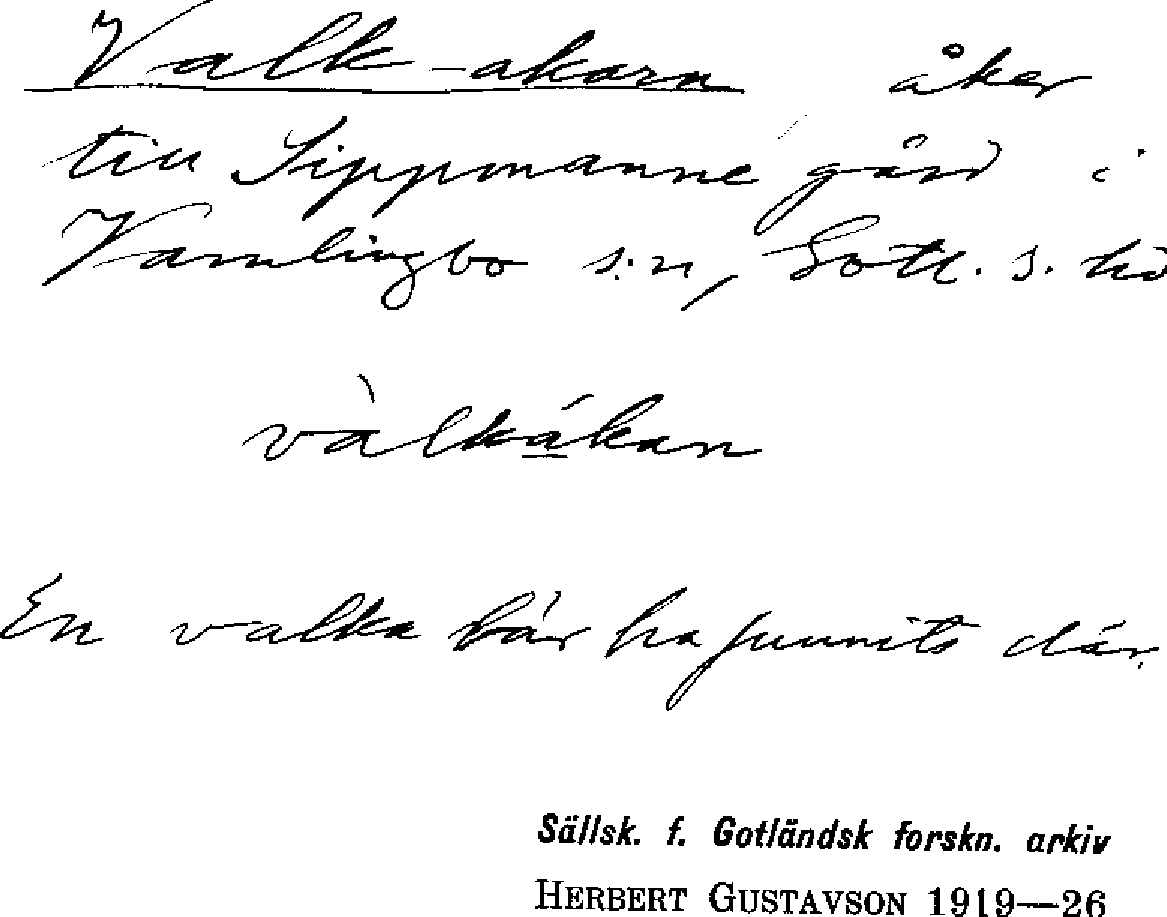 Valk-akarn åker
till Sippmanne gård i
Vamlingbo s:n, Gotl. s. hd
vàlkákan
En valka bör ha funnits där.
Sällsk. f. Gotländsk forskn. arkiv
HERBERT GUSTAVSON 1919—26